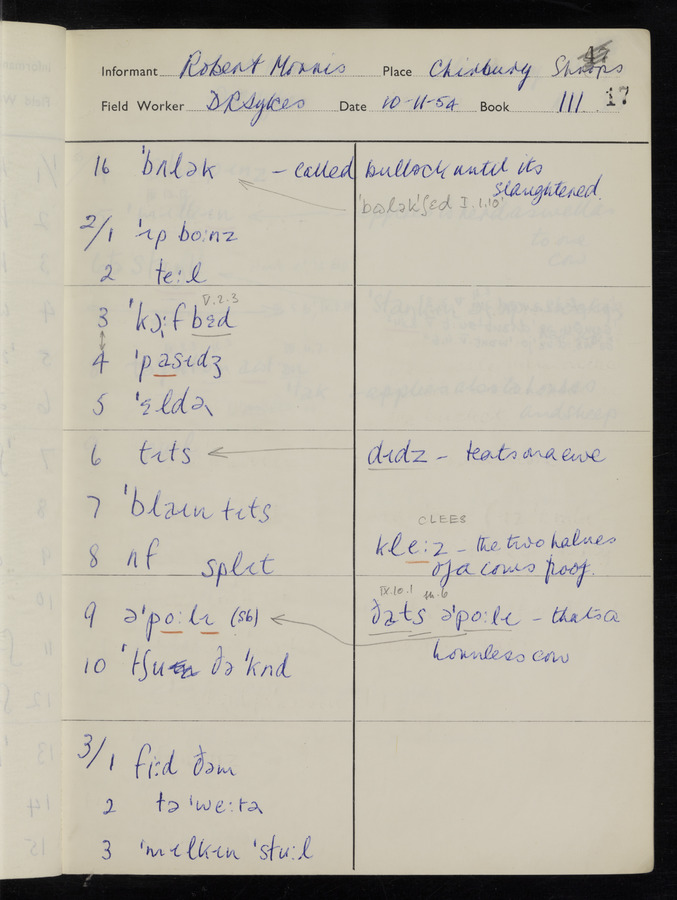 Informant Robert Morris Place Chirbury Shrops
Field Worker D R Sykes Date 10-11-54 Book III 17
16 ˈbʌlək – called bullock until its
slaughtered.
ˈbələkˈʃɛd I.1.10
2/1 ˈɪp bo:nz
2 te:l
V.2.3
3 ˈkɔ:f bɛd
4 ˈpasɪdʒ
5 ˈɛldə
6 tɪts dɪdz – teats on a ewe
7 ˈblaɪn tɪts
CLEES
8 nf splɪt kle:z – the two halves
of a cows foof.
IX.10.1 m.6
9 əˈpo:lɪ (sb) ðats əˈpo:lɪ – thats a
hornless cow
10 ˈtʃu ðə ˈkʌd
3/1 fi:d ðəm
2 tə ˈwe:tə
3 ˈmɪlkɪn ˈstu:l